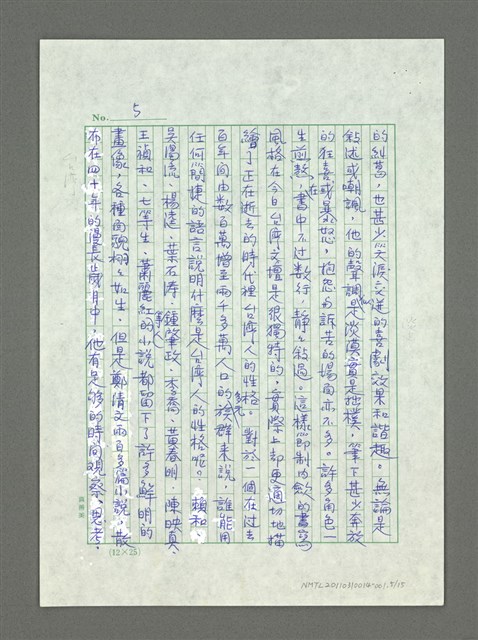 No. 5
的糾葛，也甚少涕淚交迸的喜劇效果和諧趣。無論是
敘述或嘲諷，他的聲調是淡漠實是拙樸，筆下甚少奔放
的狂喜或暴怒，抱怨、訴苦的場面亦不多。許多角色一
生煎熬，在書中不過數行，靜靜敘過。這樣節制內斂的書寫
風格在今日台灣文壇是狠獨特的，實際上卻更適切地描
繪了正在逝去的時代裡台灣人的性格。對於一個在過去
百年間由數百萬增至兩千多萬人口的族群來說，誰能用
任何簡捷的語言說明什麼是台灣人的性格呢。賴和、
吳濁流、楊逵、葉石濤、鍾肇政、李喬、黃春明、陳映真、
王禎和、七等生、蕭麗紅等人的小說都留下了許多鮮明的
畫像，各種面貌栩栩如生。但是鄭清文兩百多篇小說，散
布在四十年的漫長歲月中，他有足够的時間觀察、思考，
(12×25)
NMTL20110310014-001.5/15